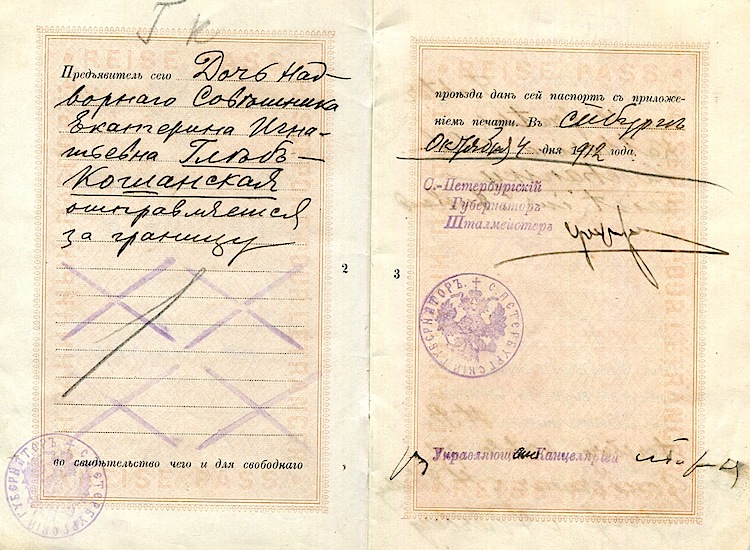 Г К
Предъявитель сего Дочь Над-
ворнаго Советника
Екатерина Игна-
тьевна Глѣбъ-
Кошанская
отправляется
за границу
2
во свидѣтельство чего и для свободнаго
С. ПЕТЕРБУРГСКІЙ ГУБЕРНАТОРЪ
REISEPASS
проѣзда данъ сей паспортъ съ приложе-
ніемъ печати. Въ СПбургѣ
Октября 4 дня 1912 года.
С.-Петербургскій
Губернаторъ
Шталмейстеръ
3
С. ПЕТЕРБУРГСКІЙ ГУБЕРНАТОРЪ
Управляющ Канцеляріей